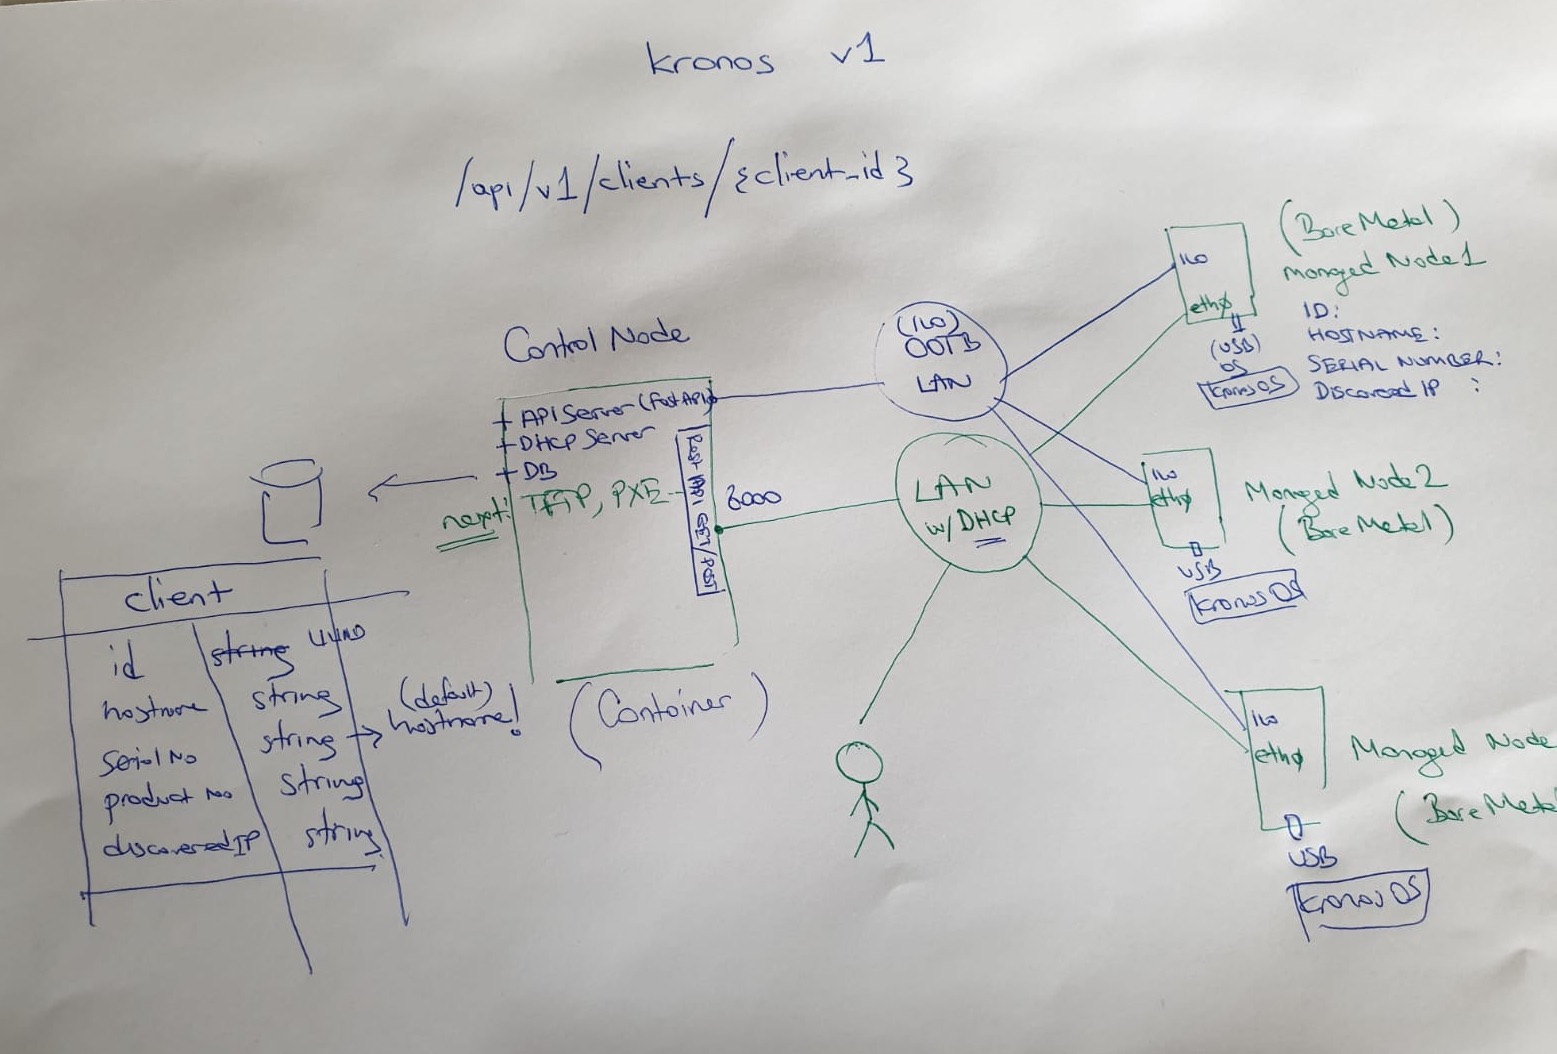 kronos v1
/api/v1/clients/{client_id}
Control Node
+ API Server (FastAPI)
+ DHCP Server
+ DB
next: TFTP, PXE
Rest API GET/POST
8000
(Container)
client
id string UUID
hostname string
serialNo string → (default) hostname!
product No string
discoveredIP string
(ILO)
OOTB
LAN
LAN
w/ DHCP
ILO
eth0
(USB)
OS
KronosOS
(BareMetal)
Managed Node1
ID:
HOSTNAME:
SERIAL NUMBER:
Discovered IP :
ILO
eth0
USB
KronosOS
Managed Node2
(BareMetal)
ILO
eth0
USB
KronosOS
Managed Node
(BareMeta